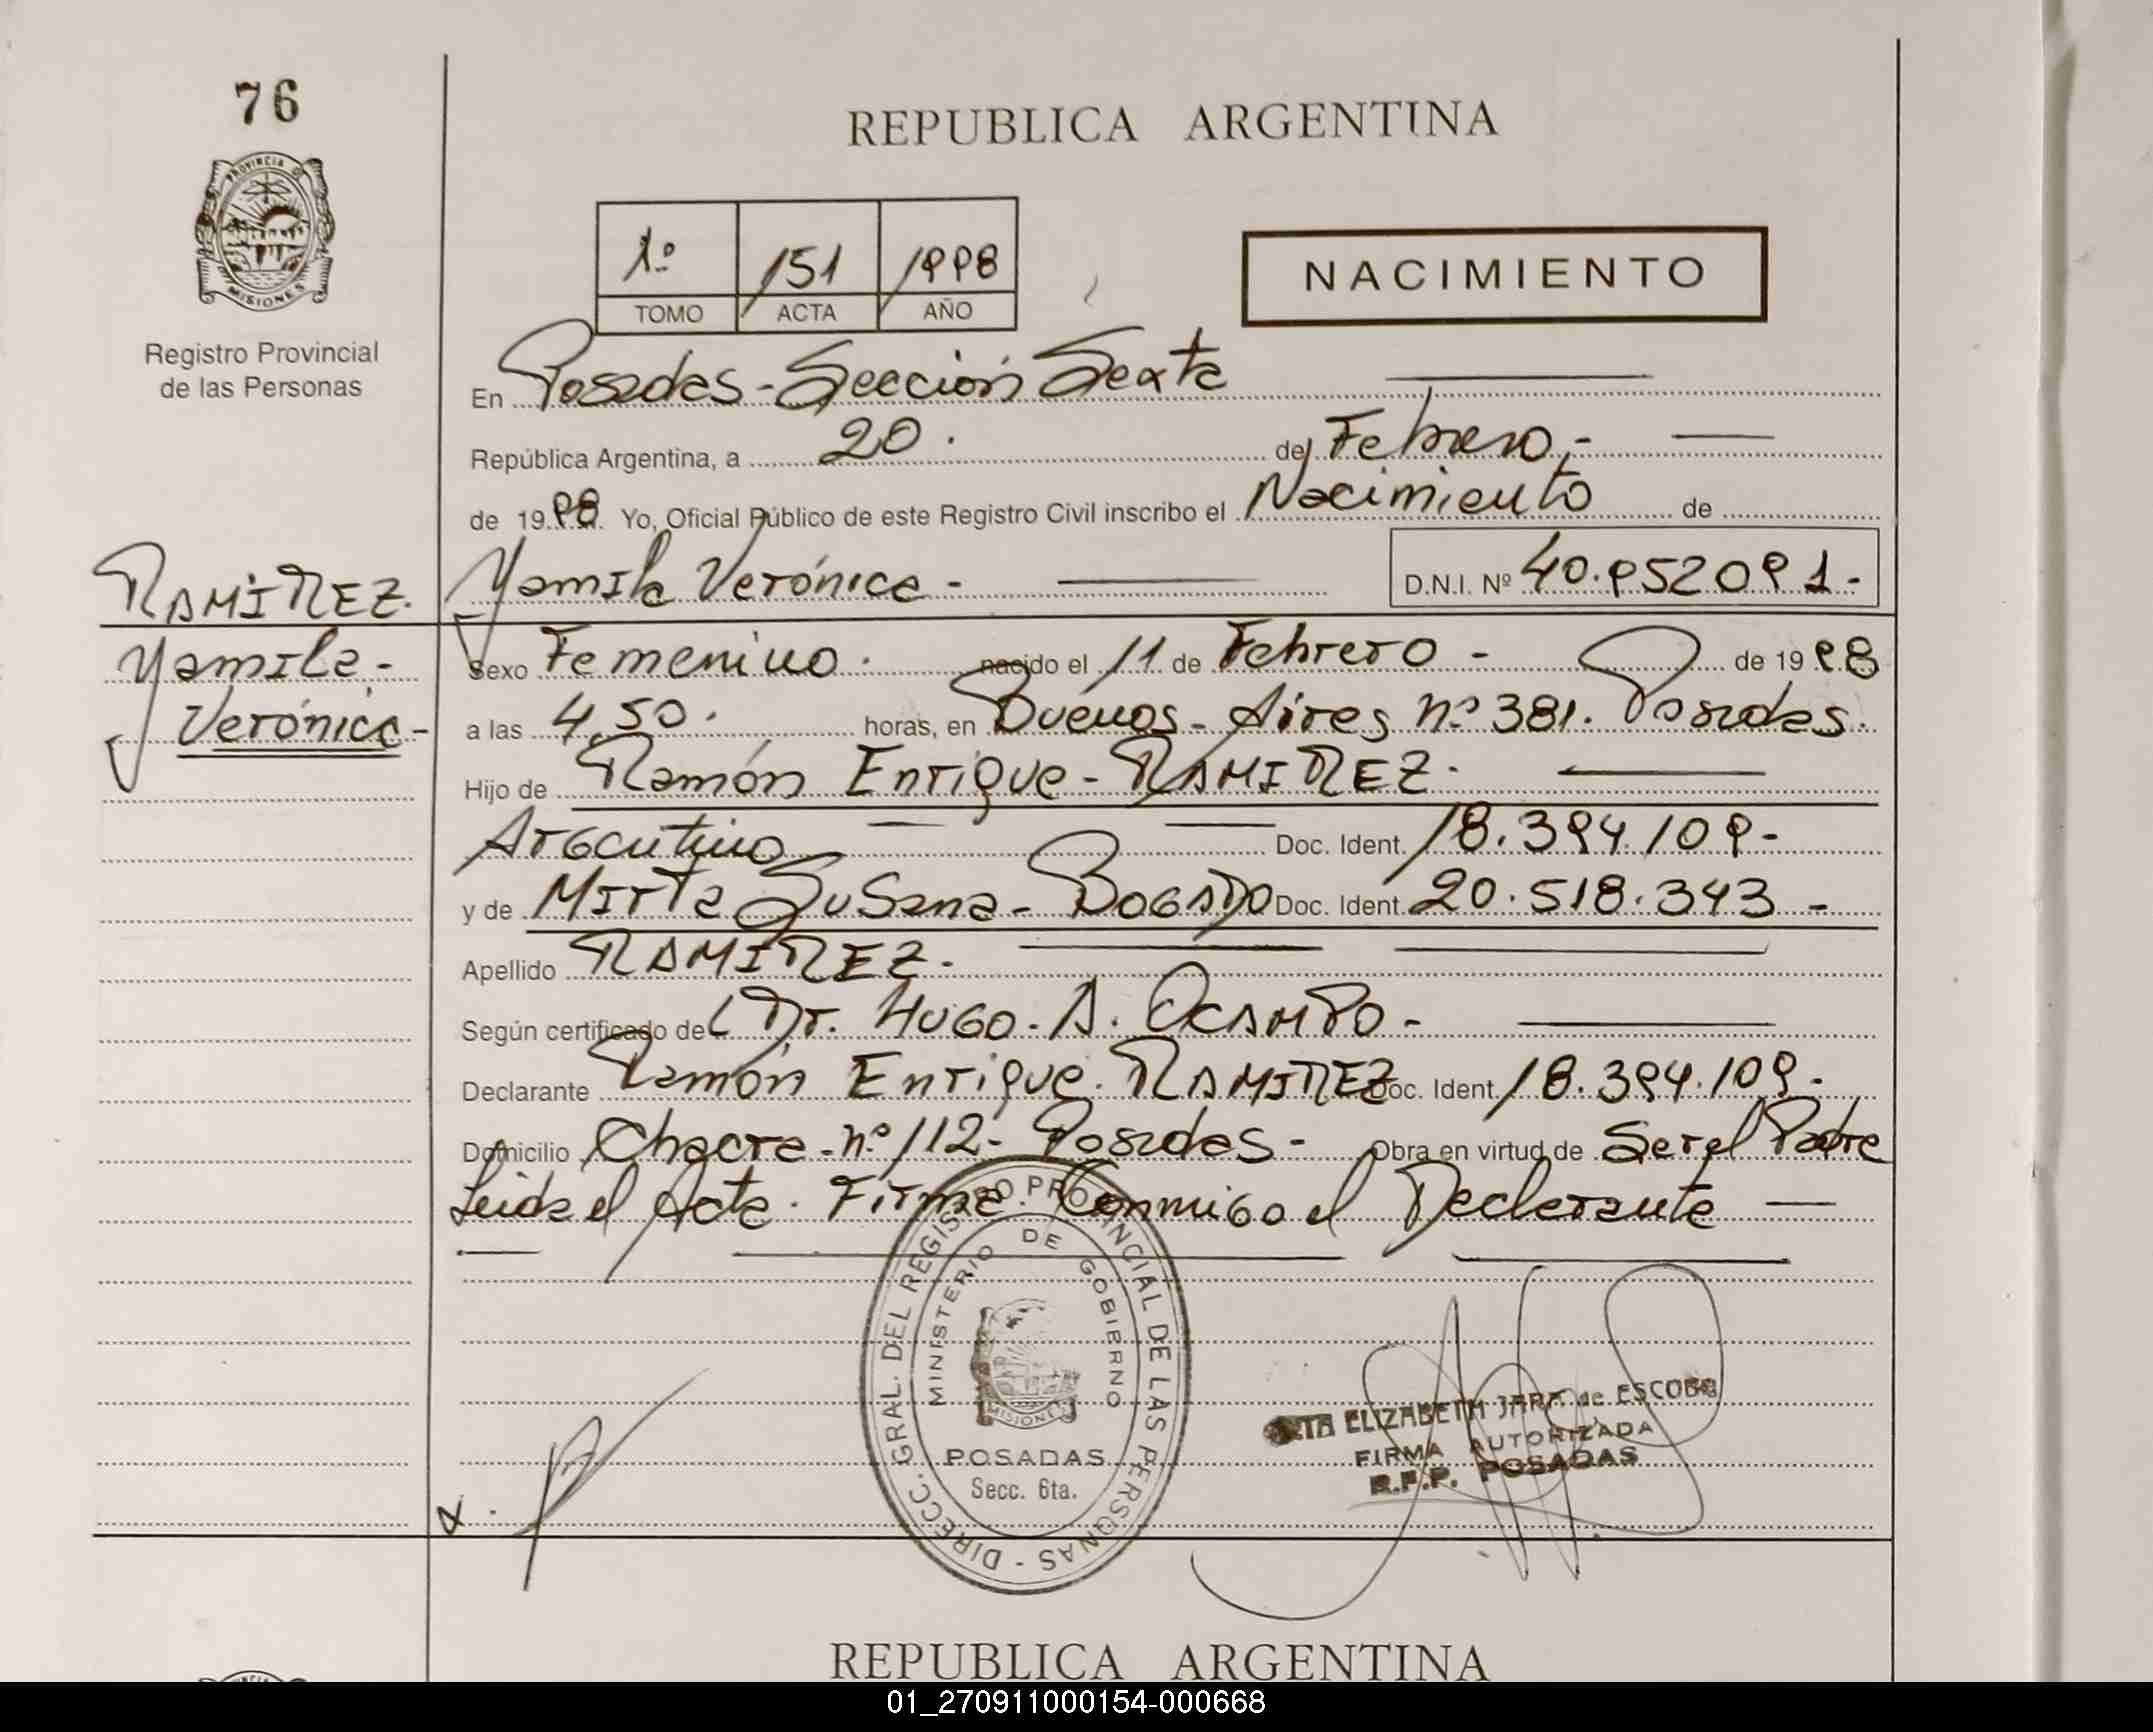 76
REPUBLICA ARGENTINA
PROVINCIA
MISIONES
Registro Provincial
de las Personas
1º 151 1998
TOMO ACTA AÑO
NACIMIENTO
En Posadas - Sección Sexta
República Argentina, a 20. de Febrero.-
de 1998. Yo, Oficial Público de este Registro Civil inscribo el Nacimiento de
RAMIREZ.
Yamila
Verónica-
Yamila Verónica - D.N.I. Nº 40.952091.-
Sexo Femenino. nacido el 11 de Febrero - de 1998
a las 4,50. horas, en Buenos-Aires nº 381. Posadas.
Hijo de Ramón Enrique - RAMIREZ.
Argentino Doc. Ident. 18.394.109-
y de Mirta Susana - BOGADO Doc. Ident. 20.518.343 -
Apellido RAMIREZ.
Según certificado del Dr. HUGO. A. OCAMPO -
Declarante Ramón Enrique. RAMIREZ Doc. Ident. 18.394.109-
Domicilio Chacra-nº 112- Posadas - Obra en virtud de Ser el Padre
Leida el Acta. Firma Conmigo el Declarante
DIRECC. GRAL. DEL REGISTRO PROVINCIAL DE LAS PERSONAS -
MINISTERIO DE GOBIERNO
MISIONES
POSADAS
Secc. 6ta.
ELIZABETH JARA de ESCOBAR
FIRMA AUTORIZADA
R.P.P. POSADAS
REPUBLICA ARGENTINA
01_270911000154-000668